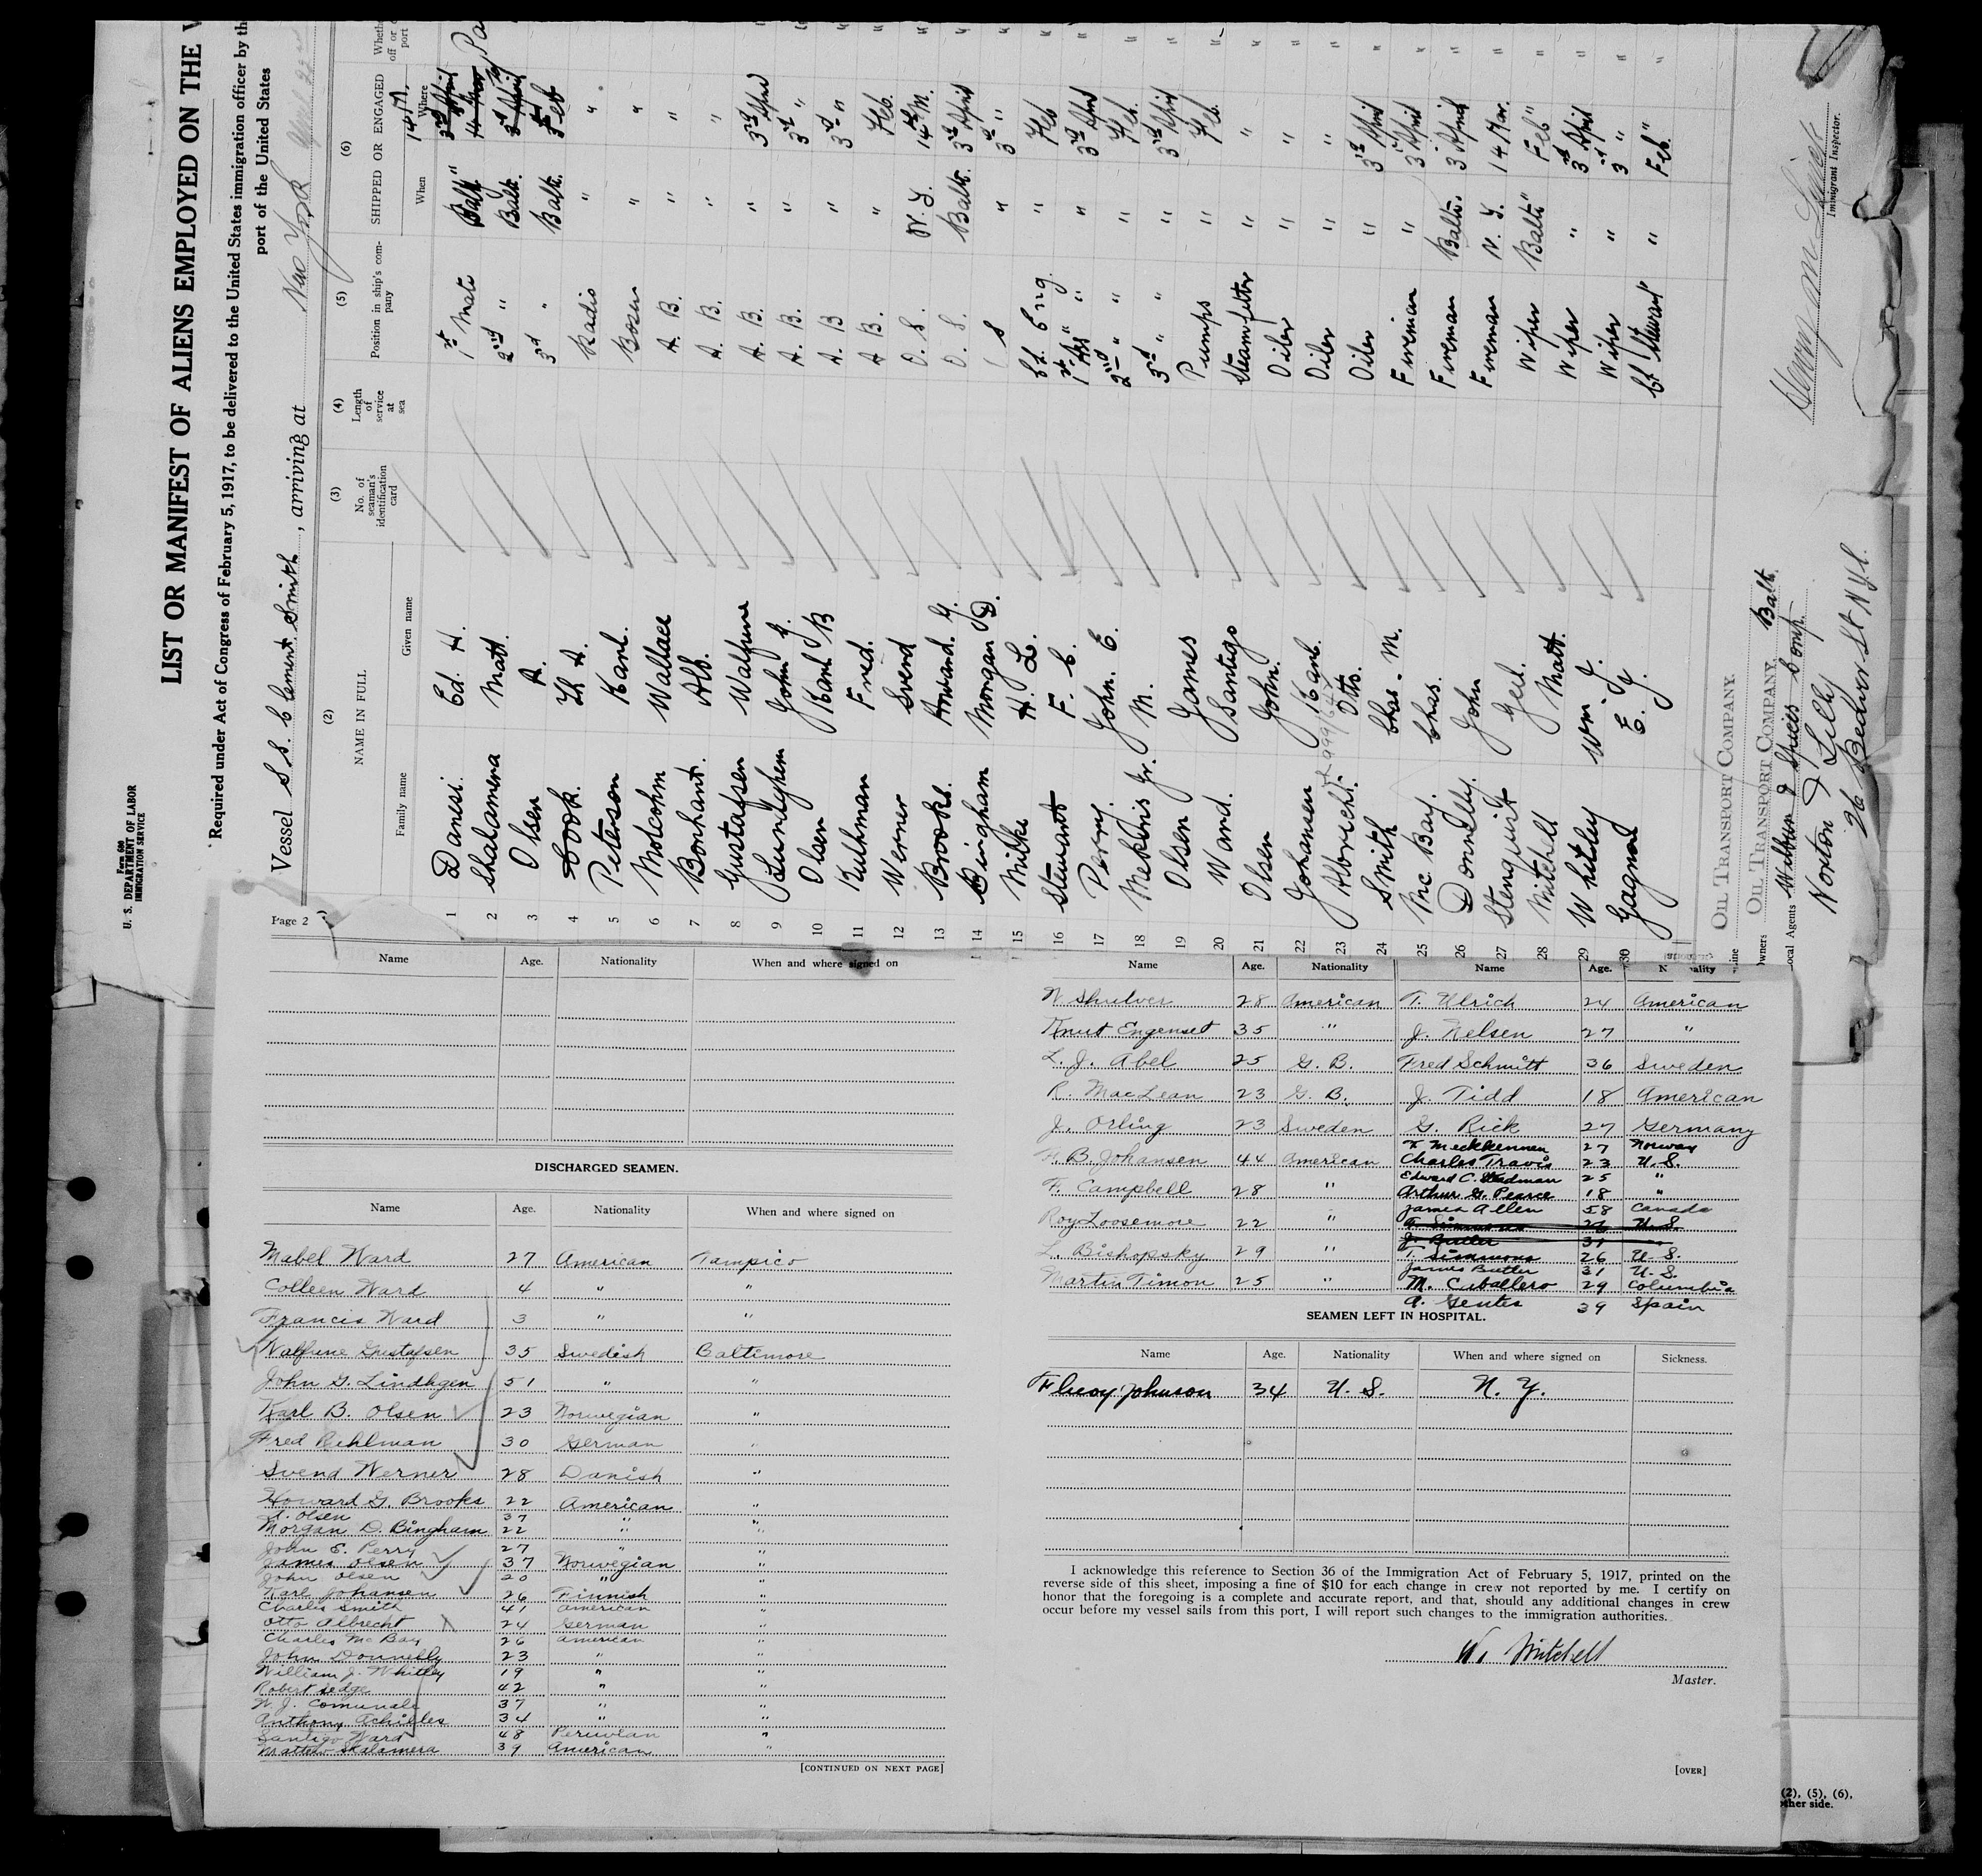 Form 600
U. S. DEPARTMENT OF LABOR
IMMIGRATION SERVICE
LIST OR MANIFEST OF ALIENS EMPLOYED ON THE V
Required under Act of Congress of February 5, 1917, to be delivered to the United States immigration officer by the
port of the United States
Vessel S. S. Clement Smith, arriving at New York
(2) (3) (4) (5) (6)
NAME IN FULL No. of seaman's identification card Length of service at sea Position in ship's company SHIPPED OR ENGAGED
Family name Given name When Where
1 Danesi Ed. H. 1st Mate Balt "
2 Skalamera Matt. 2nd " Balt.
3 Olsen A. 3d " Balt. Feb
4 Cook. Radio " "
5 Peterson Karl. Bosun " "
6 Wallace A. B. " "
7 Alb. A. B. " "
8 Gustafsen Walfrine A. B. " 3rd April
9 John G. A. B. " 3d "
10 Olsen Karl B A. B " 3d "
11 Fred. A B. " Feb.
12 Werner Svend O. S. N. Y. 14th M.
13 Brooks. Howard. G. O. S. Balt. 3d April
14 Bingham Morgan D. " 3d "
15 H. L. Ch. Eng " Feb
16 Stewart F. C. 1st As " " 3rd April
17 Perry. John. E. 2nd " " " Feb.
18 Jr. M. 3d " " " 3rd April
19 Olsen James Pumps " Feb.
20 Ward. Santigo Steamfitter " "
21 Olsen John. Oiler " "
22 Johansen Karl. Oiler " "
23 Albrecht. Otto. Oiler " 3rd April
24 Smith Chas. M. Fireman " 3 April
25 Mc. Bay. Chas. Fireman Balt. 3 April
26 Donnelly. John Fireman N. Y. 14 Mar.
27 Stenquist Wiper Balt " Feb "
28 Mitchell Matt. Wiper " 3d April
29 Whitley Wm. J. Wiper " 3d "
30 Gagnon E. J. Ch Steward " Feb. "
OIL TRANSPORT COMPANY.
Owners OIL TRANSPORT COMPANY. Balt.
Local Agents
Norton Lilly
26 Beaver St N.Y.C.
Immigrant Inspector.
Page 2
Name Age. Nationality When and where signed on
DISCHARGED SEAMEN.
Name Age. Nationality When and where signed on
Mabel Ward 27 American Tampico
Colleen Ward 4 " "
Francis Ward 3 " "
Walfrine Gustafsen 35 Swedish Baltimore
John G. Lindhgen 51 " "
Karl B. Olsen 23 Norwegian "
Fred Kuhlman 30 German "
Svend Werner 28 Danish "
Howard G. Brooks 22 American "
Olsen 37 " "
Morgan D. Bingham 22 " "
John E. Perry 27 " "
James Olsen 37 Norwegian "
John Olsen 20 " "
Karl Johansen 26 Finnish "
Charles Smith 41 American "
Otto Albrecht 24 German "
Charles Mc Bay 26 American "
John Donnelly 23 " "
William J. Whitley 19 " "
Robert Sedge 42 " "
W. J. Comunale 37 " "
Anthony Achilles 34 " "
Santigo Ward 48 Peruvian "
Matthew Skalamera 39 American "
[CONTINUED ON NEXT PAGE]
Name Age. Nationality Name Age. Nationality
N Shulver 28 American T. Ulrich 24 American
Knut Engenset 35 " J. Nelsen 27 "
L. J. Abel 25 G. B. Fred Schmitt 36 Sweden
R. MacLean 23 G. B. J. Tidd 18 American
J. Orling 23 Sweden G. Rick 27 Germany
27 Norway
B. Johansen 44 American Charles Travis 23 U. S.
Edward C. Steadman 25 "
F. Campbell 28 " Arthur G. Pearce 18 "
James Allen 58 Canada
Roy Loosemore 22 " T. Simmons 26 U. S.
J. Butler 31
L. Bishopsky 29 " T. Simmons 26 U. S.
James Butler 31 U. S.
Martin Timon 25 " M. Caballero 29 Columbia
A. Gentes 39 Spain
SEAMEN LEFT IN HOSPITAL.
Name Age. Nationality When and where signed on Sickness.
Johnson 34 U. S. N. Y.
I acknowledge this reference to Section 36 of the Immigration Act of February 5, 1917, printed on the
reverse side of this sheet, imposing a fine of $10 for each change in crew not reported by me. I certify on
honor that the foregoing is a complete and accurate report, and that, should any additional changes in crew
occur before my vessel sails from this port, I will report such changes to the immigration authorities.
W. Mitchell
Master.
[OVER]
(2), (5), (6),
other side.